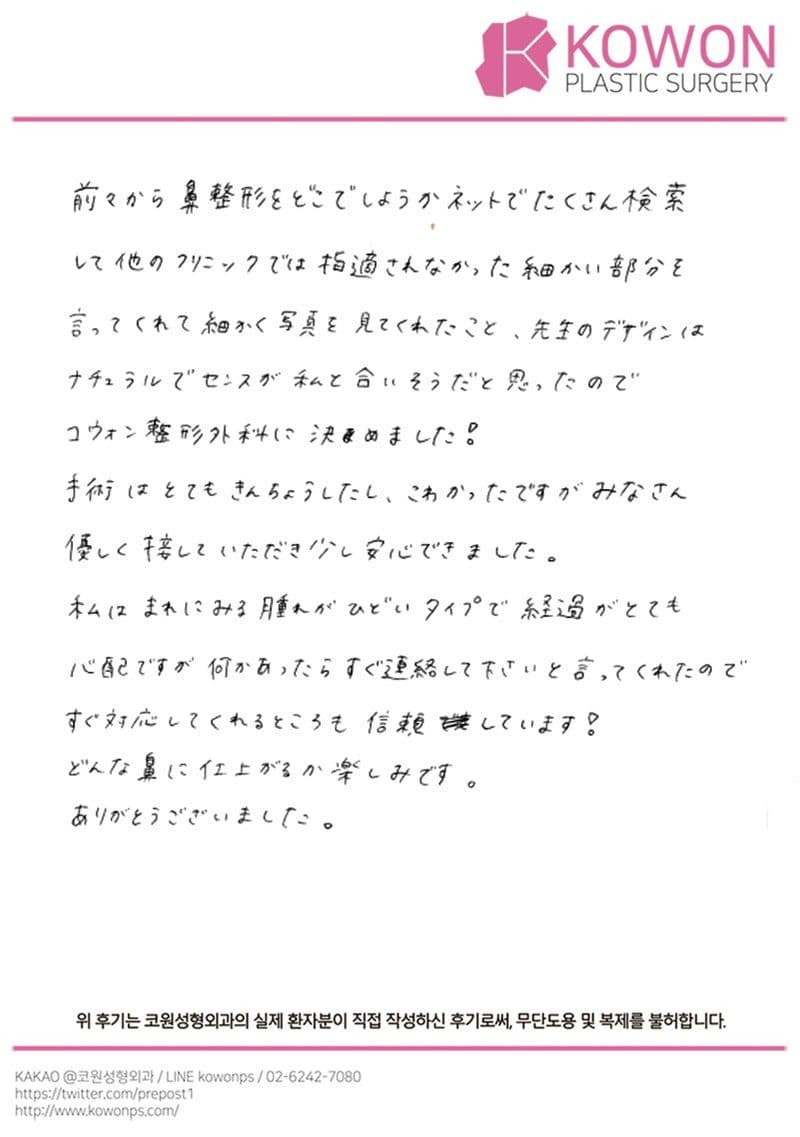 KOWON
PLASTIC SURGERY
前々から鼻整形をどこでしようかネットでたくさん検索
して他のクリニックでは指適されなかった細かい部分を
言ってくれて細かく写真を見てくれたこと、先生のデザインは
ナチュラルでセンスが私と合いそうだと思ったので
コウォン整形外科に決めました!
手術はとてもきんちょうしたし、こわかったですがみなさん
優しく接していただき少し安心できました。
私はまれにみる腫れがひどいタイプで経過がとても
心配ですが何かあったらすぐ連絡して下さいと言ってくれたので
すぐ対応してくれるところも信頼しています!
どんな鼻に仕上がるか楽しみです。
ありがとうございました。
위 후기는 코원성형외과의 실제 환자분이 직접 작성하신 후기로써, 무단도용 및 복제를 불허합니다.
KAKAO @코원성형외과 / LINE kowonps / 02-6242-7080
https://twitter.com/prepost1
http://www.kowonps.com/